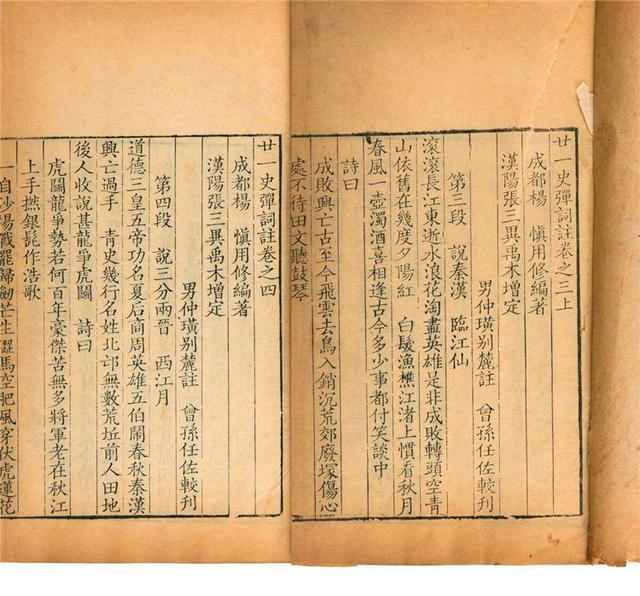 廿一史彈詞註卷之三上
成都楊 慎用修編著
漢陽張三異禹木增定
男仲璜別麓註 曾孫任佐較刊
第三段 說秦漢 臨江仙
滾滾長江東逝水浪花淘盡英雄是非成敗轉頭空青
山依舊在幾度夕陽紅 白髮漁樵江渚上慣看秋月
春風一壺濁酒喜相逢古今多少事都付笑談中
詩曰
成敗興亡古至今飛雲去鳥入銷沉荒郊廢塚傷心
處不待田文聽鼓琴
廿一史彈詞註卷之四
成都楊 慎用修編著
漢陽張三異禹木增定
男仲璜別麓註 曾孫任佐較刊
第四段 說三分兩晉 西江月
道德三皇五帝功名夏后商周英雄五伯鬧春秋秦漢
興亡過手 青史幾行名姓北邙無數荒坵前人田地
後人收說甚龍爭虎鬭 詩曰
虎鬭龍爭勢若何百年豪傑苦無多將軍老在秋江
上手撚銀髭作浩歌
一自沙場戰罷歸劒芒生澀馬空肥風穿伏虎蓮花